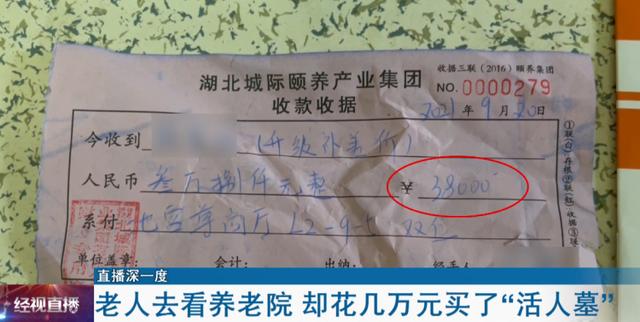 收据三联（2016）颐养集团
湖北城际颐养产业集团
NO.0000279
收款收据
2021年9月20日
今收到 (升级补差价)
人民币 叁万捌仟元整 ¥ 38000
系付 地宫尊尚厅 L2-9-5 双位
单位盖章: 会计: 出纳: 经手人
直播深一度
经视直播
老人去看养老院 却花几万元买了“活人墓”